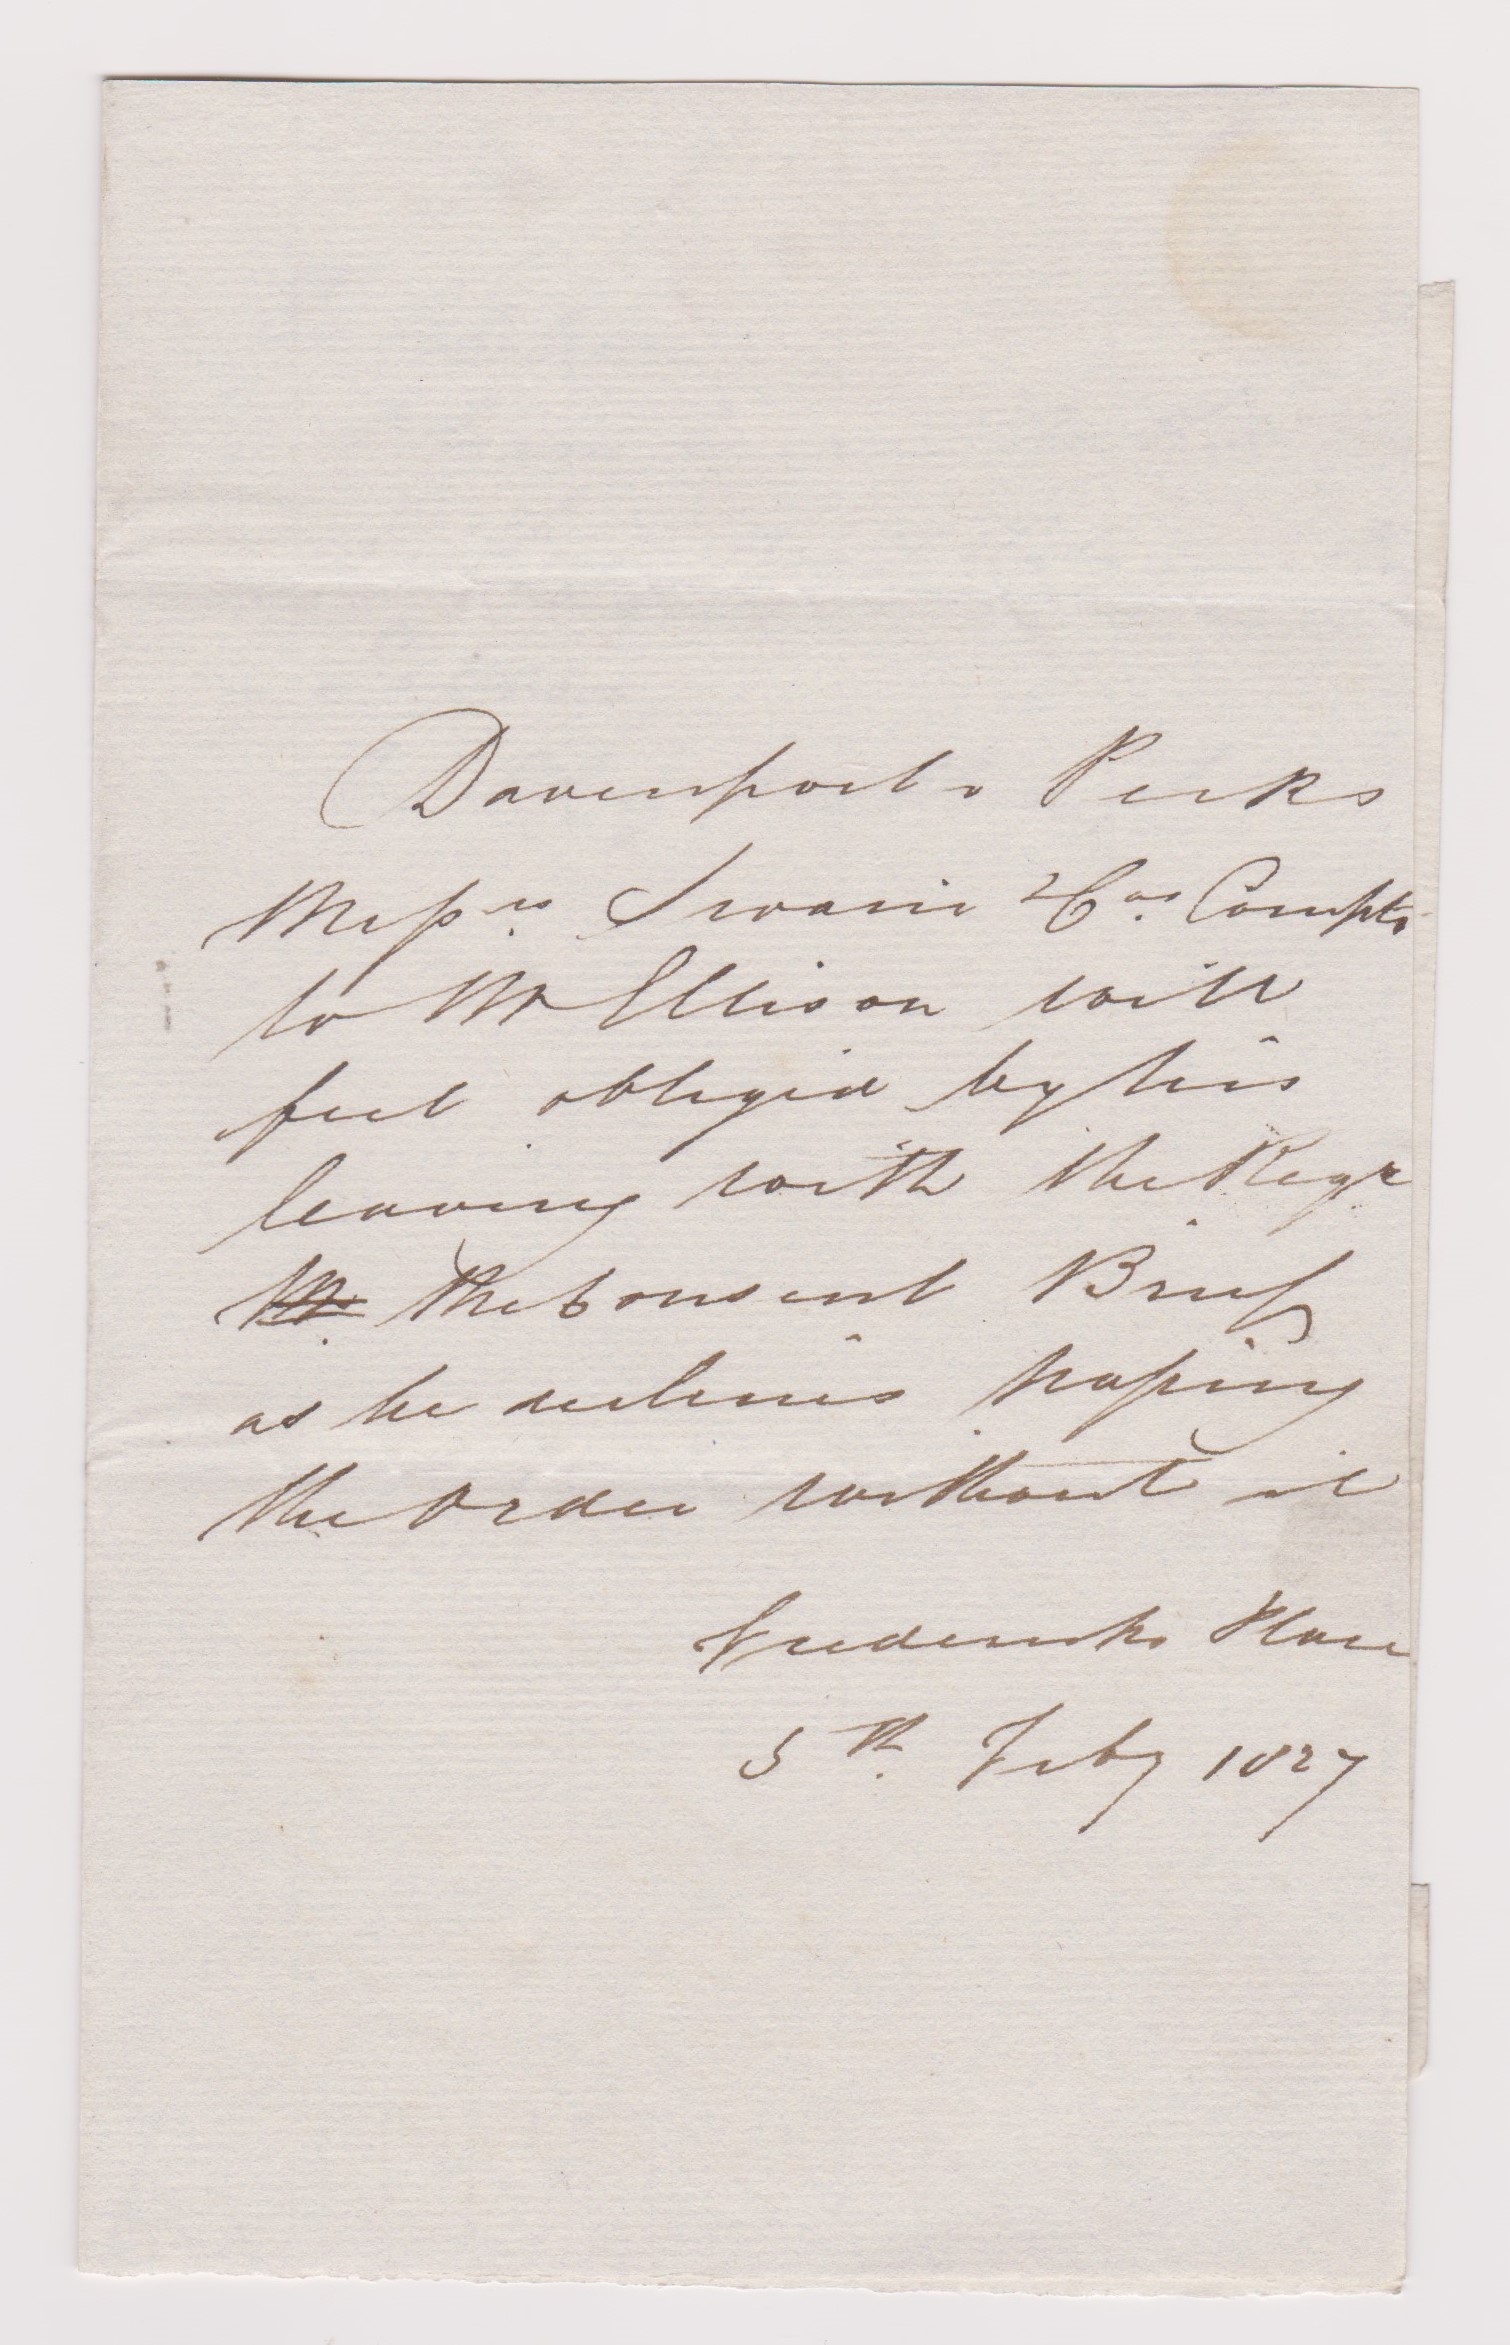 Davenport v Perks
Messrs. Swain & Cos. Compts
to Mr Ellison will
feel obliged by his
leaving with the Regr
the Consent Brief
as he declines passing
the order without it
Fredericks Place
5th. Feby 1827